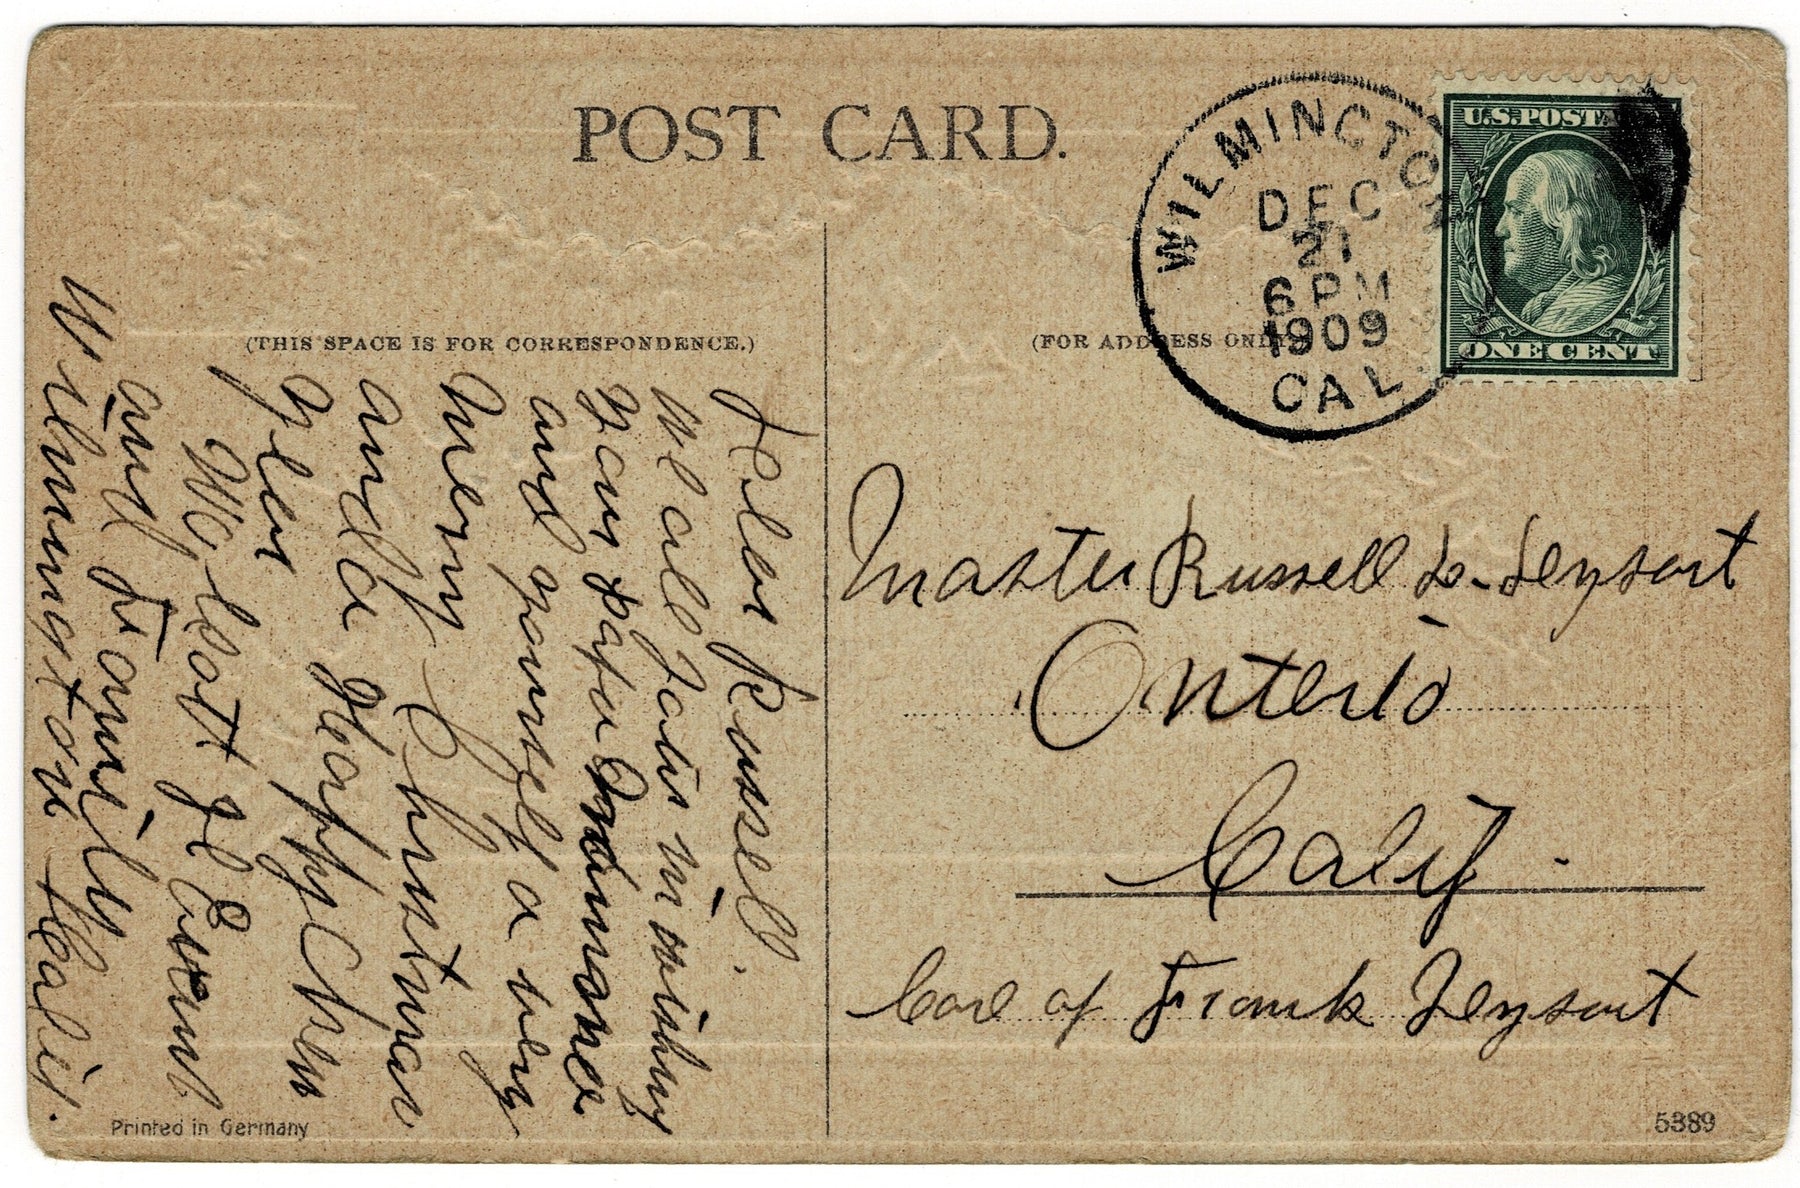 POST CARD.
WILMINGTON
DEC
21
6 PM
1909
CAL.
U.S. POSTA
ONE CENT
(THIS SPACE IS FOR CORRESPONDENCE.)
(FOR ADDRESS ONLY.)
Dear Russell.
we all join in wishing
your papa
and yourself a very
Merry Christmas
and a Happy New
year
and Family
Wilmington Calif.
Master Russell
Ontario
Calif.
Care of Frank
Printed in Germany
5389